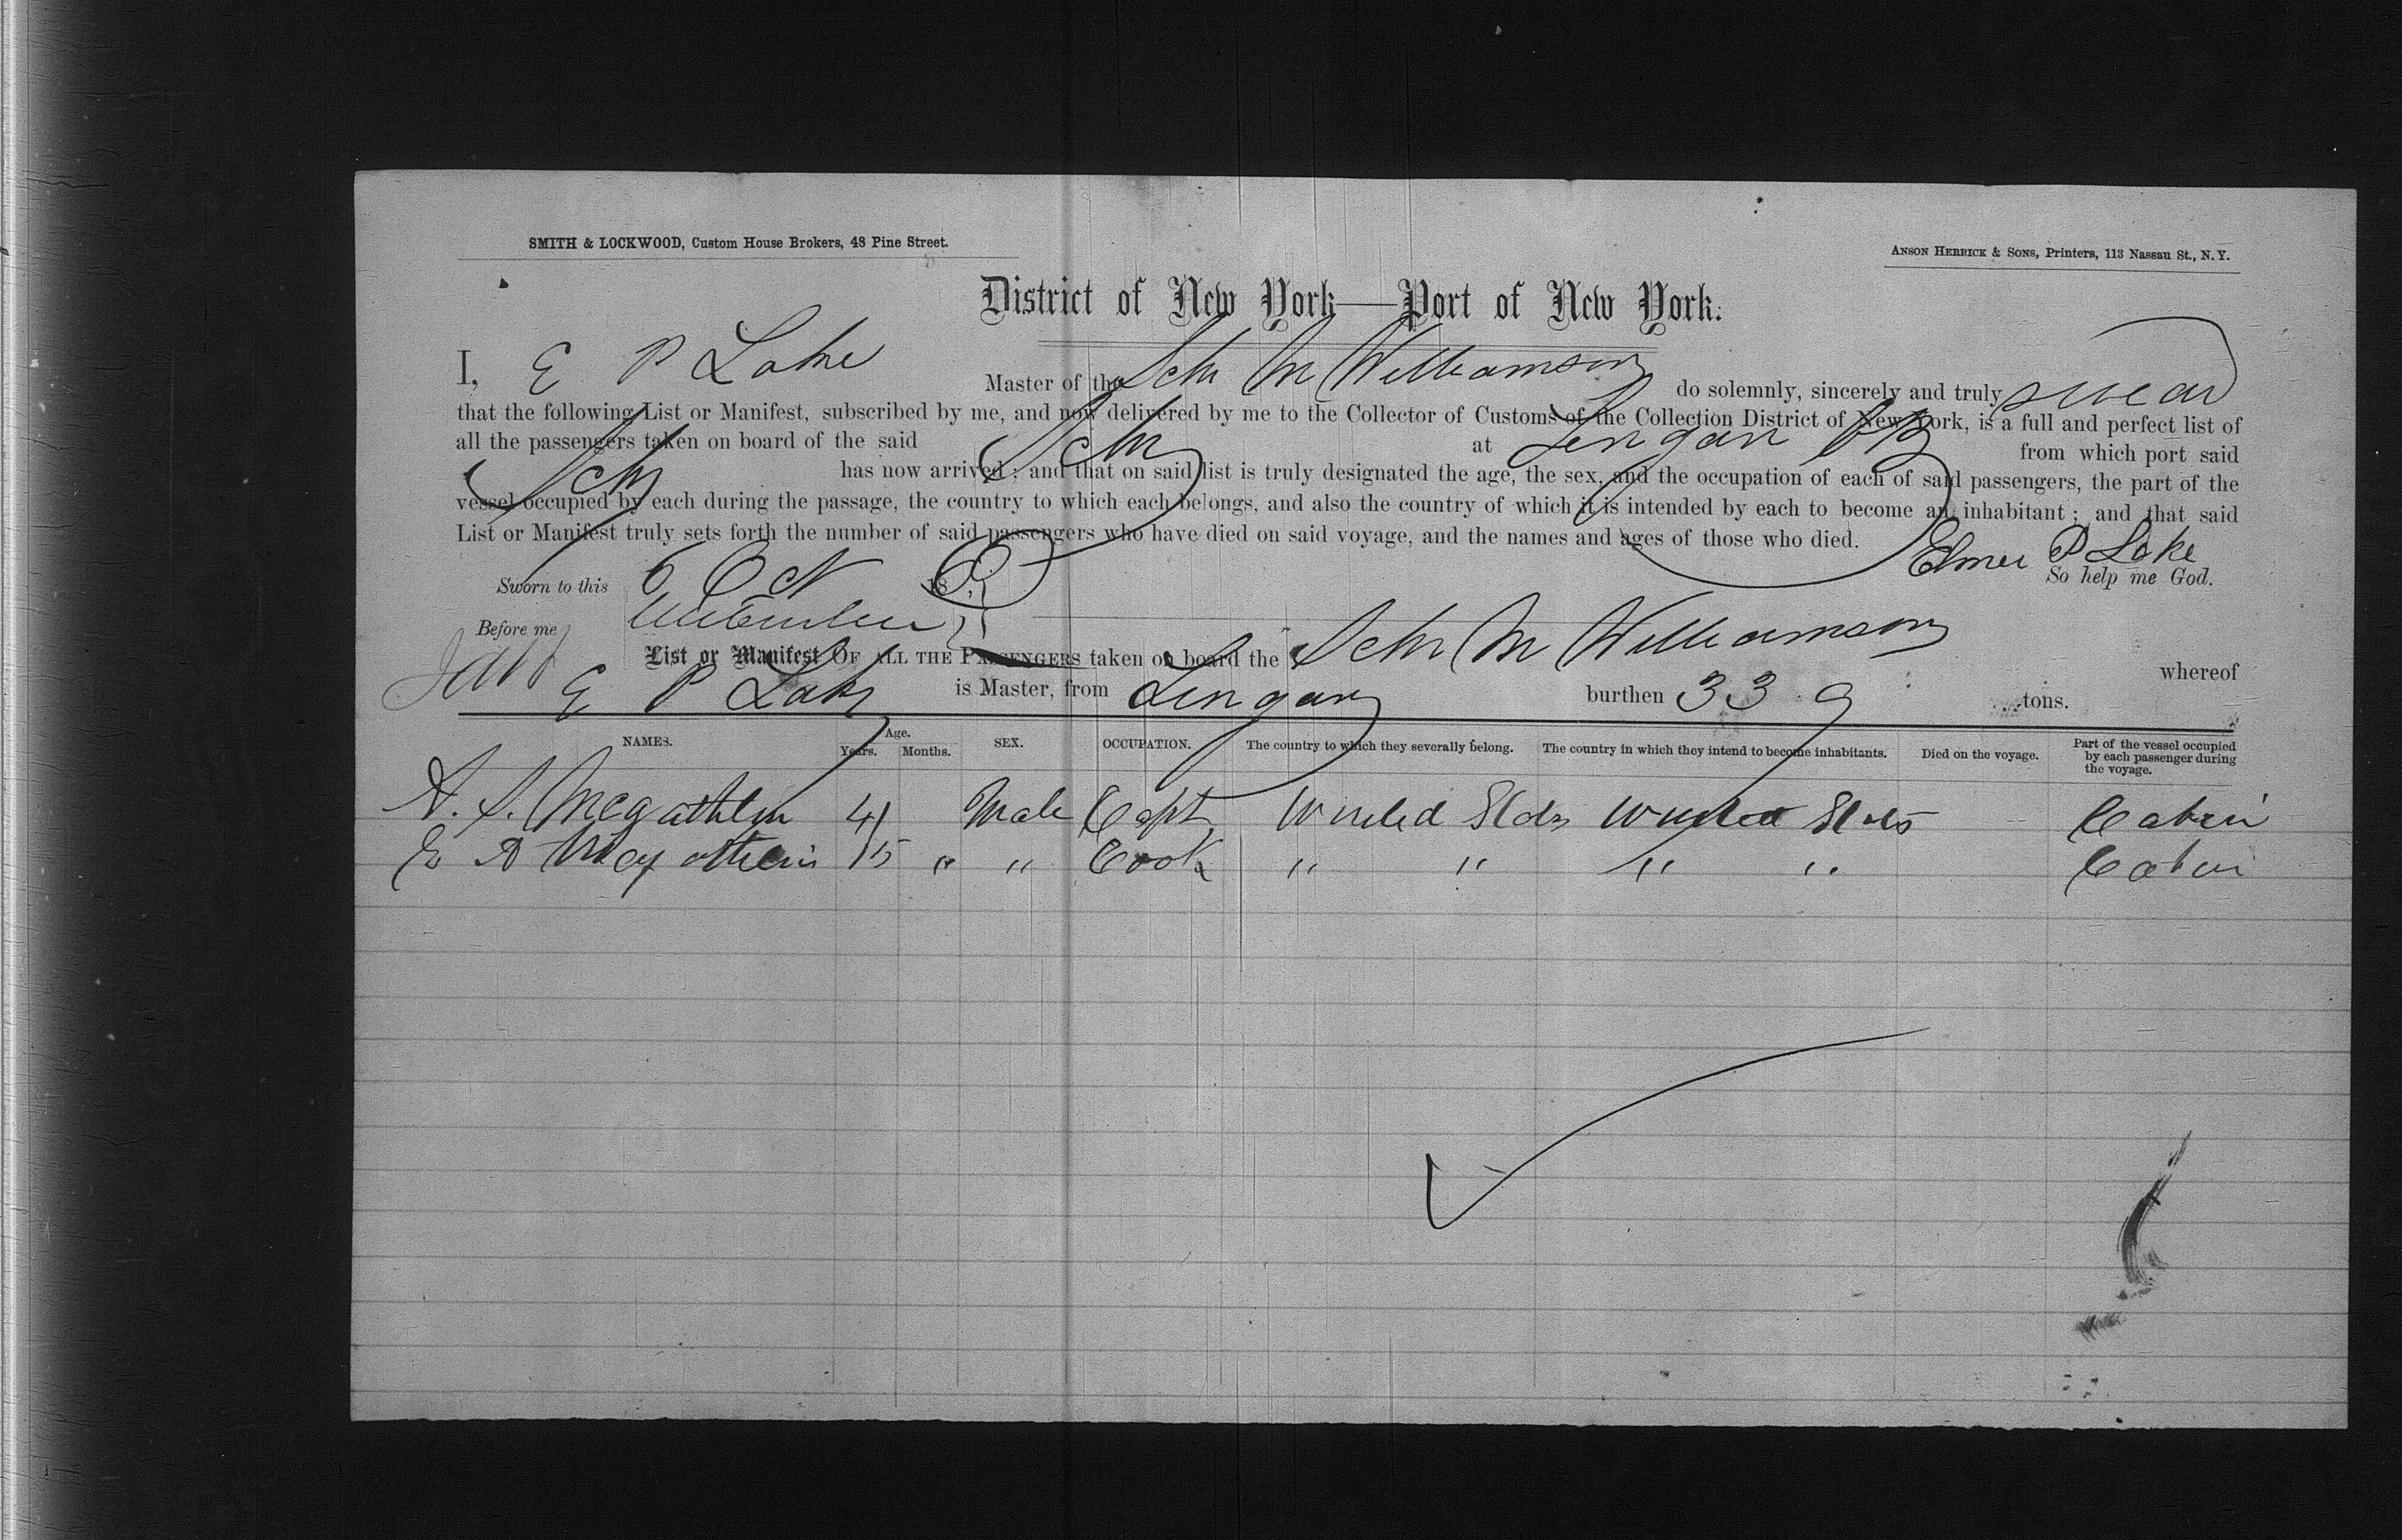 SMITH & LOCKWOOD, Custom House Brokers, 48 Pine Street.
ANSON HERRICK & SONS, Printers, 113 Nassau St., N. Y.
District of New York—Port of New York.
I, E P Lake Master of the Schr M Williamson do solemnly, sincerely and truly swear
that the following List or Manifest, subscribed by me, and now delivered by me to the Collector of Customs of the Collection District of New York, is a full and perfect list of
all the passengers taken on board of the said Schr at Lingan CB from which port said
Schr has now arrived; and that on said list is truly designated the age, the sex, and the occupation of each of said passengers, the part of the
vessel occupied by each during the passage, the country to which each belongs, and also the country of which it is intended by each to become an inhabitant; and that said
List or Manifest truly sets forth the number of said passengers who have died on said voyage, and the names and ages of those who died.
Elmer P Lake
Sworn to this 6 Oct 18 So help me God.
Before me
List or Manifest OF ALL THE PASSENGERS taken on board the Schr M Williamson whereof
E P Lake is Master, from Lingan burthen 339 tons.
NAMES. Age. Years. Months. SEX. OCCUPATION. The country to which they severally belong. The country in which they intend to become inhabitants. Died on the voyage. Part of the vessel occupied by each passenger during the voyage.
A. S. Megathlin 41 Male Capt United Stds United States Cabin
E A Megathlin 15 " " Cook " " " " Cabin